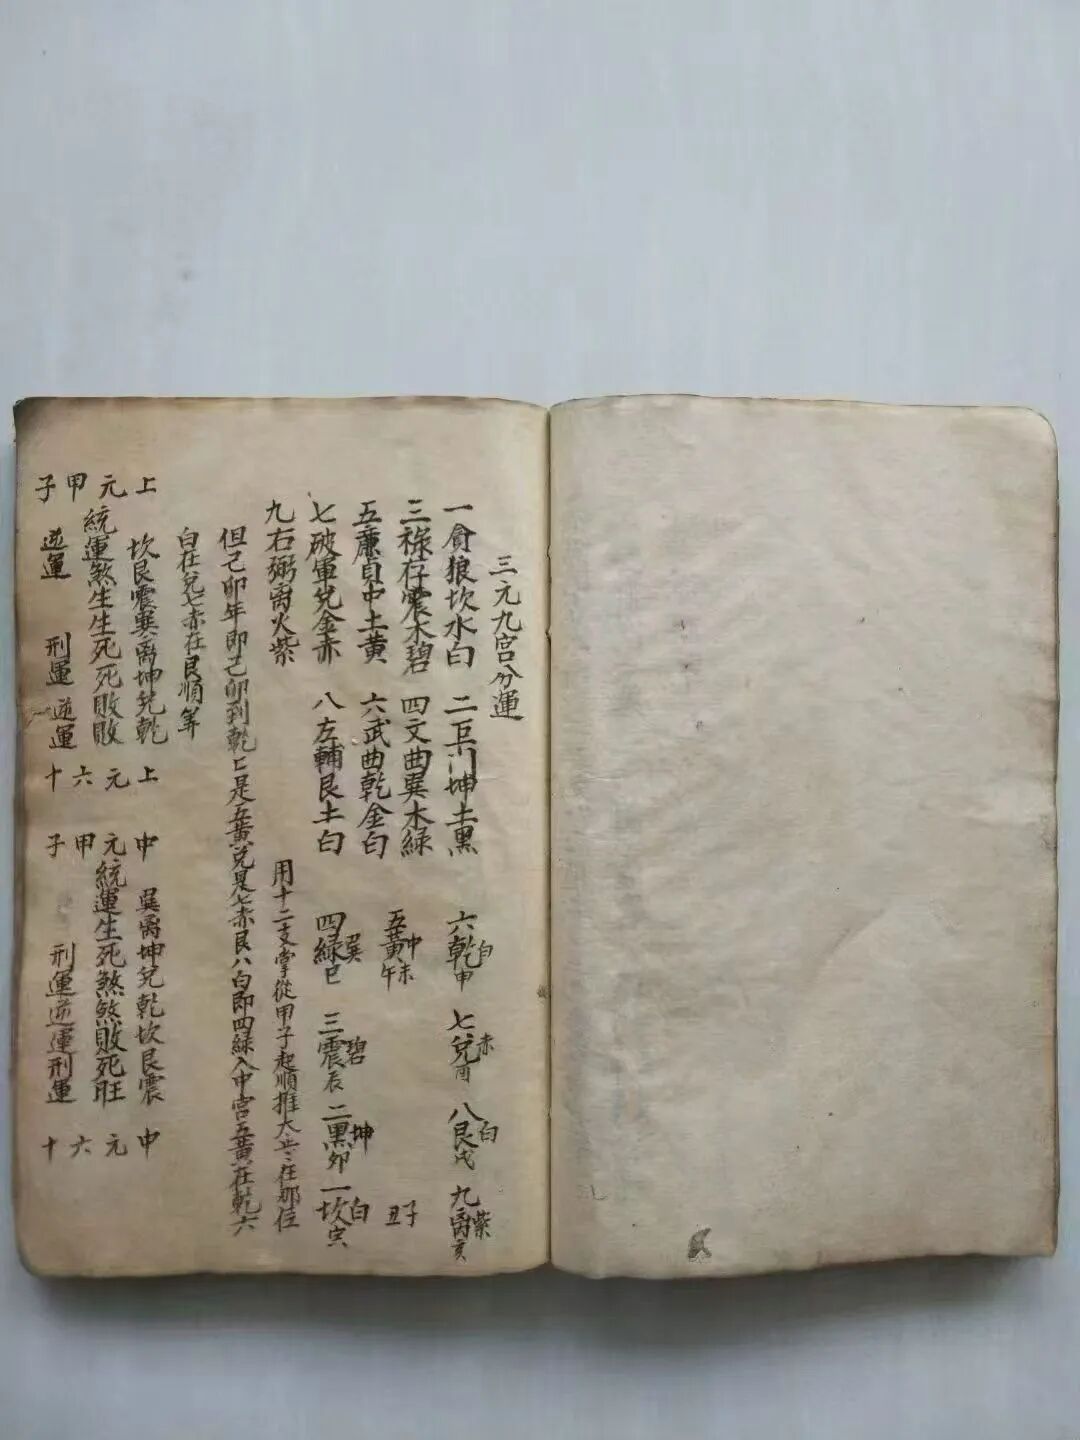 三元九宮分運
一貪狼坎水白 二巨门坤土黑
三祿存震木碧 四文曲巽木綠
五廉貞中土黃 六武曲乾金白
七破軍兌金赤 八左輔艮土白
九右弼离火紫
六乾白申 七兌赤酉 八艮白戌 九离紫亥
五黃中午未 子丑
四綠巽巳 三震碧辰 二黑坤卯 一坎白寅
用十二支掌從甲子起順推大 在那位
但己卯年即己卯到乾 是五黃兌是七赤艮八白即四綠入中宮五黃在乾六
白在兌七赤在艮順筭
上元甲子
坎艮震巽离坤兌乾
統運煞生生死死敗敗
逆運 刑運 逆運
上元六十
中元甲子
巽离坤兌乾坎艮震
統運生死煞煞敗死旺
刑運逆運刑運
中元六十